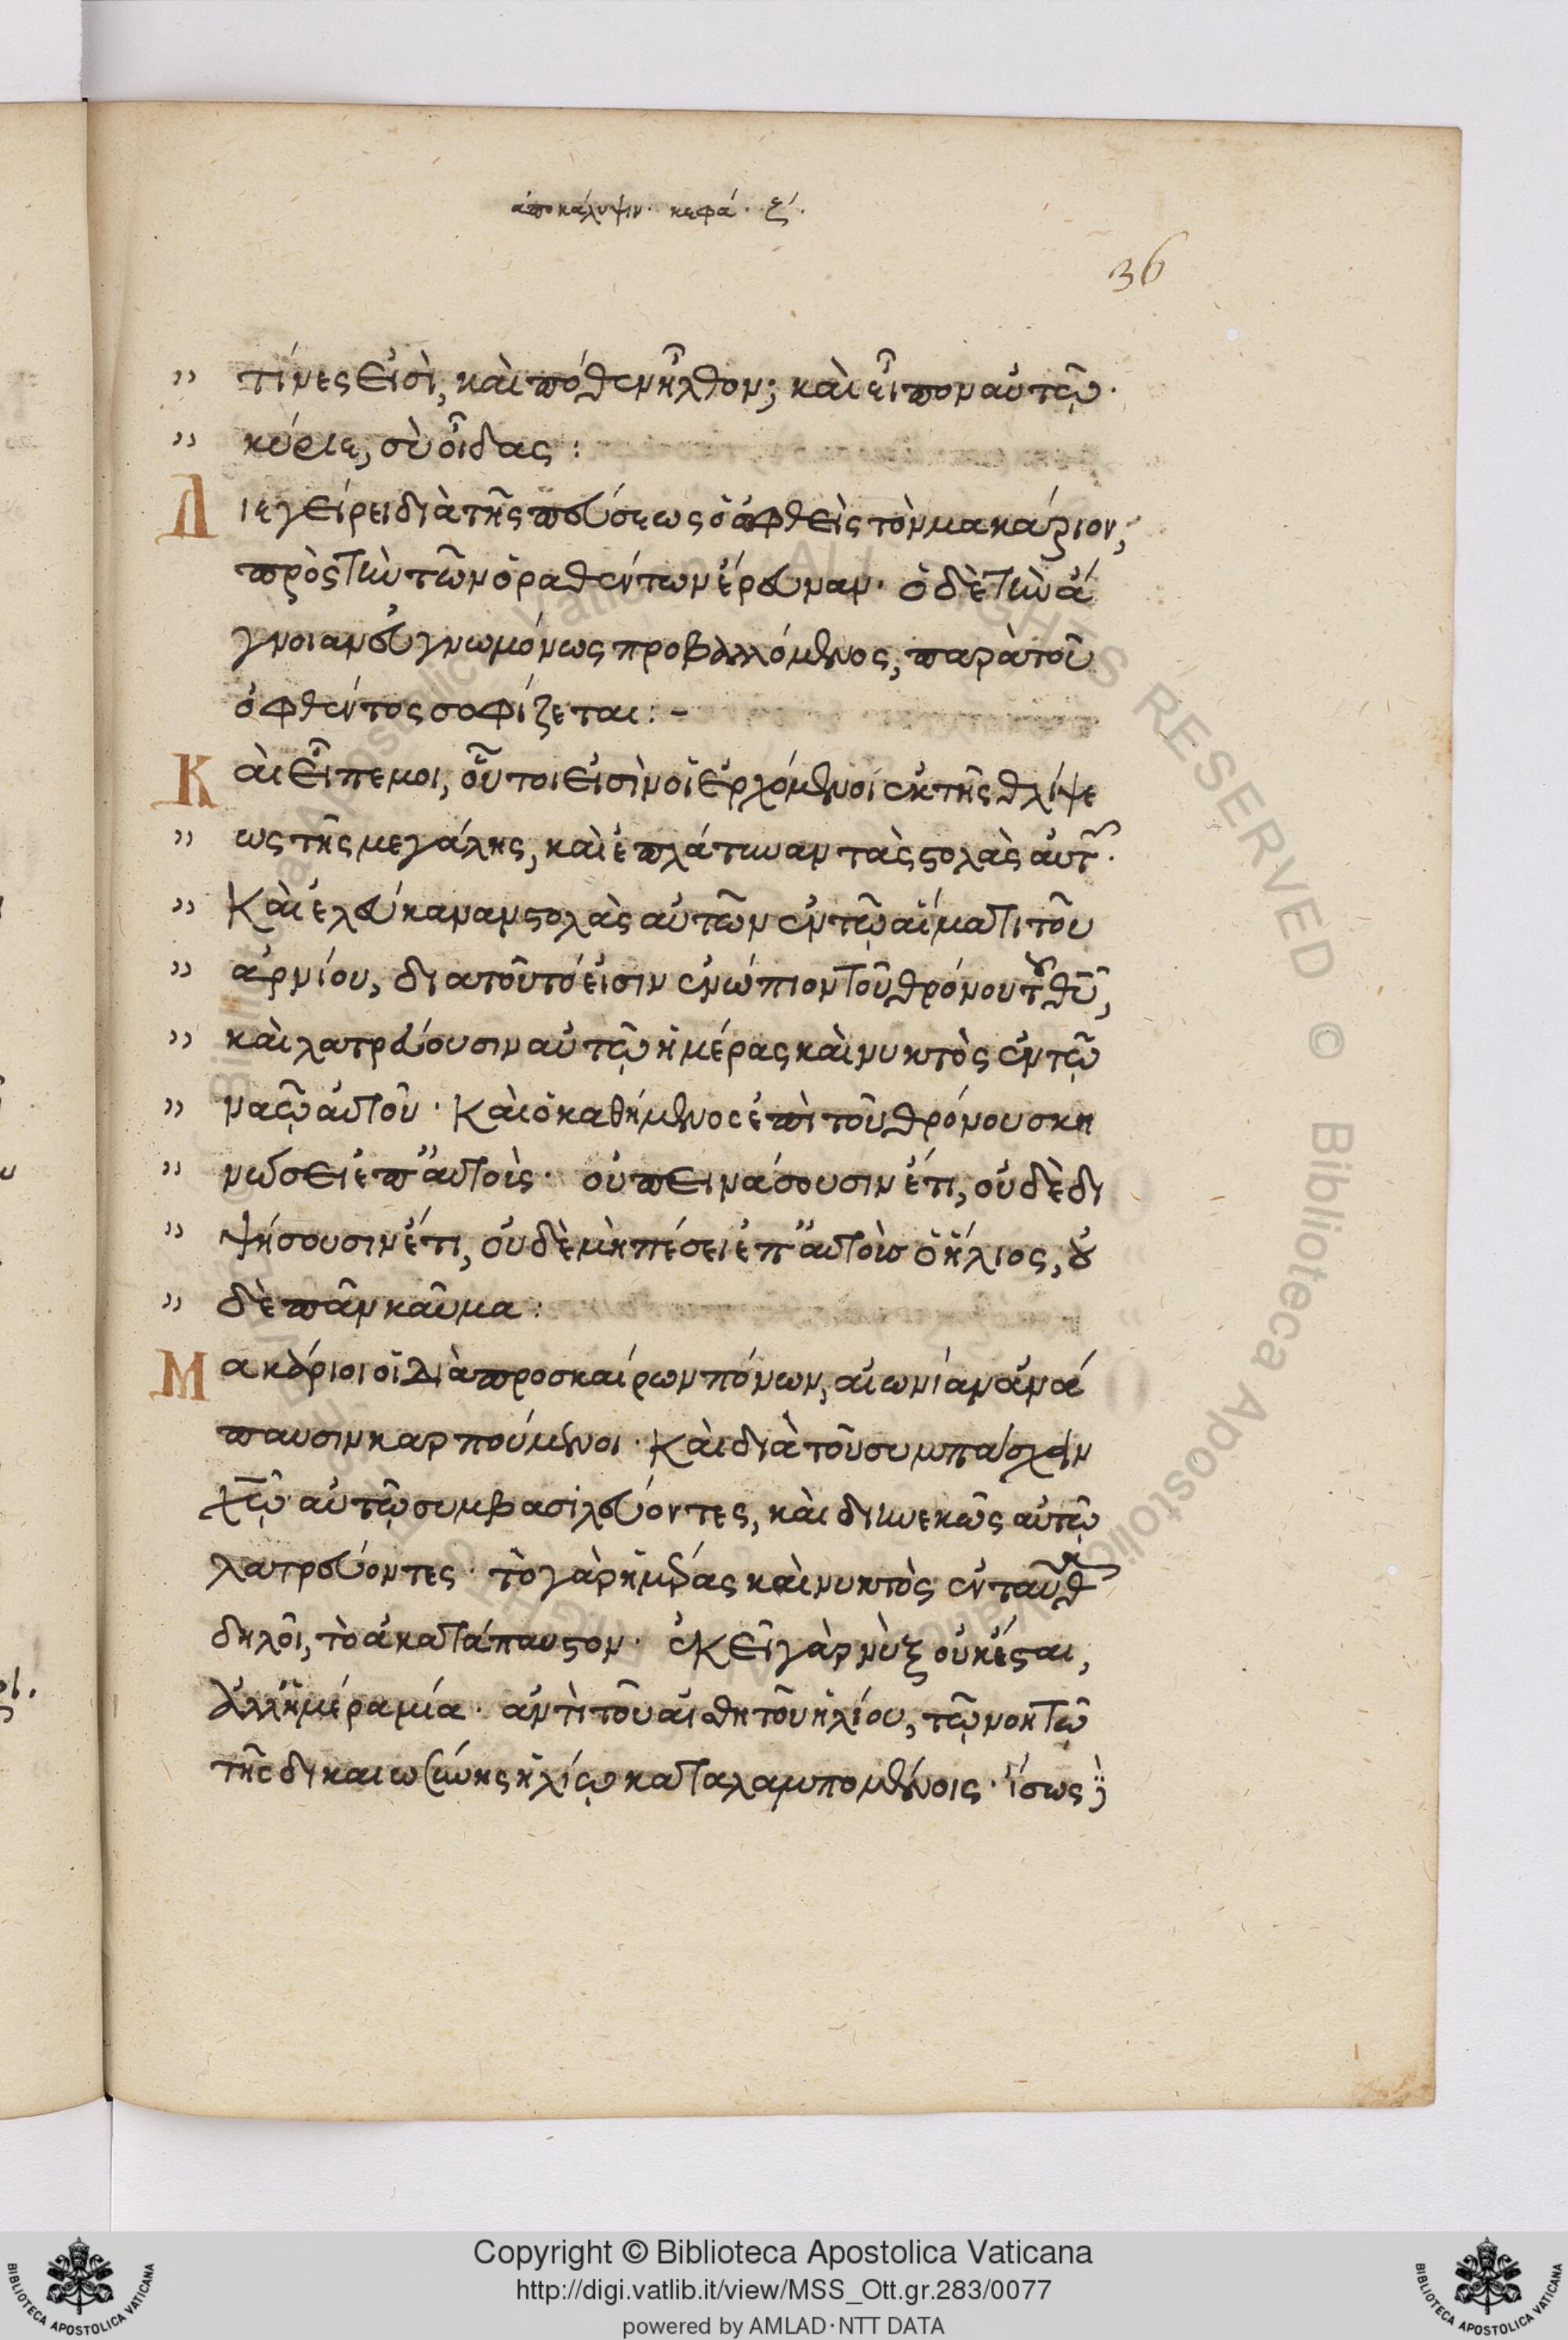 ἀποκάλυψιν. κεφά. ζ΄.
36
" τίνες εἰσὶ, καὶ πόθεν ἦλθον; καὶ εἶπον αὐτῷ.
" κύριε, σὺ οἶδας:
Διεγείρει διὰ τῆς πεύσεως ὁ ὀφθεὶς τὸν μακάριον,
πρὸς τὴν τῶν ὁραθέντων ἔρευναν. ὁ δὲ τὴν ἄ
γνοιαν εὐγνωμόνως προβαλλόμενος, παρὰ τοῦ
ὀφθέντος σοφίζεται:-
Καὶ εἶπε μοι, οὗτοι εἰσὶν οἱ ἐρχόμενοι ἐκ τῆς θλίψε
" ως τῆς μεγάλης, καὶ ἐπλάτυναν τὰς στολὰς αὐτ.
" Καὶ ἐλεύκαναν στολὰς αὐτῶν ἐν τῷ αἵματι τοῦ
" ἀρνίου, διατοῦτό εἰσιν ἐνώπιον τοῦ θρόνου τοῦ θῦ,
" καὶ λατρεύουσιν αὐτῷ ἡμέρας καὶ νυκτὸς ἐν τῷ
" ναῷ αὐτοῦ. Καὶ ὁ καθήμενος ἐπὶ τοῦ θρόνου σκη
" νώσει ἐπ' αὐτοὶς. οὐ πεινάσουσιν ἔτι, οὐδὲ δι
" ψήσουσιν ἔτι, οὐδὲ μὴ πέσει ἐπ' αὐτοὶσ ὁ ἥλιος, οὐ
" δὲ πᾶν καῦμα:
Μακάριοι οἱ διὰ προσκαίρων πόνων, αἰωνίαν ἀνά
παυσιν καρπούμενοι. Καὶ διὰ τοῦ συμπάσχειν
χῶ αὐτῷ συμβασιλεύοντες, καὶ διηνεκῶς αὐτῷ
λατρεύοντες. τὸ γὰρ ἡμέρας καὶ νυκτὸς ἐνταῦθ
δηλοῖ, τὸ ἀκατάπαυστον. ἐκεῖ γὰρ νὺξ οὐκ ἔσται,
ἀλλ' ἡμέρα μία. ἀντὶ τοῦ αἰσθητοῦ ἡλίου, τῷ νοητῷ
τῆς δικαιωσύνης ἡλίῳ καταλαμπομένοις. ἴσως
Copyright © Biblioteca Apostolica Vaticana
http://digi.vatlib.it/view/MSS_Ott.gr.283/0077
powered by AMLAD·NTT DATA